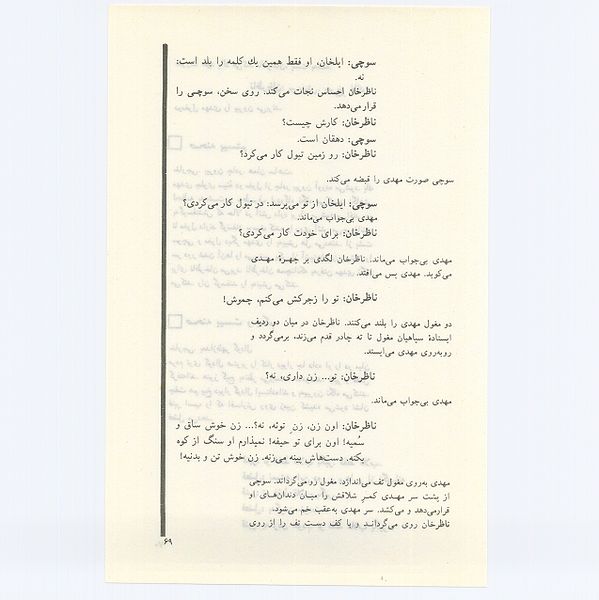 سوچی: ایلخان، او فقط همین یك کلمه را بلد است:
نه.
ناظرخان احساس نجات می‌کند. روی سخن، سوچی را
قرار می‌دهد.
ناظرخان: کارش چیست؟
سوچی: دهقان است.
ناظرخان: رو زمین تیول کار می‌کرد؟
سوچی صورت مهدی را قبضه می‌کند.
سوچی: ایلخان از تو می‌پرسد: در تیول کار می‌کردی؟
مهدی بی‌جواب می‌ماند.
ناظرخان: برای خودت کار می‌کردی؟
مهدی بی‌جواب می‌ماند. ناظرخان لگدی بر چهرهٔ مهدی
می‌کوبد. مهدی پس می‌افتد.
ناظرخان: تو را زجرکش می‌کنم، چموش!
دو مغول مهدی را بلند می‌کنند. ناظرخان در میان دو ردیف
ایستادهٔ سپاهیان مغول تا ته چادر قدم می‌زند، برمی‌گردد و
روبه‌روی مهدی می‌ایستد.
ناظرخان: تو... زن داری، نه؟
مهدی بی‌جواب می‌ماند.
ناظرخان: اون زن، زنِ توئه، نه؟... زن خوش ساق و
سُمیه! اون برای تو حیفه! نمیذارم او سنگ از کوه
بکنه. دست‌هاش پینه می‌زنه. زن خوش تن و بدنیه!
مهدی به‌روی مغول تف می‌اندازد. مغول رو می‌گرداند. سوچی
از پشت سر مهدی کمر شلاقش را میان دندان‌های او
قرارمی‌دهد و می‌کشد. سر مهدی به‌عقب خم می‌شود.
ناظرخان روی می‌گرداند و با کف دست تف را از روی
۶۹